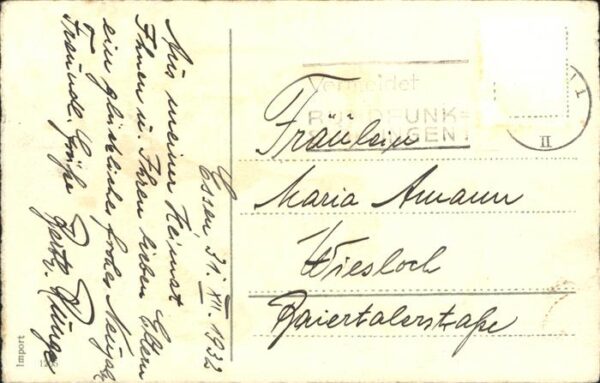 Essen, 31. XII. 1932
Aus meiner Heimat
Ihnen u. Ihren lieben Eltern
ein glückliches frohes Neujahr
Freundl. Grüße
Vermeidet
RUNDFUNK=
STÖRUNGEN!
II
Fräulein
Maria Amann
Wiesloch
Baiertalerstraße
Import